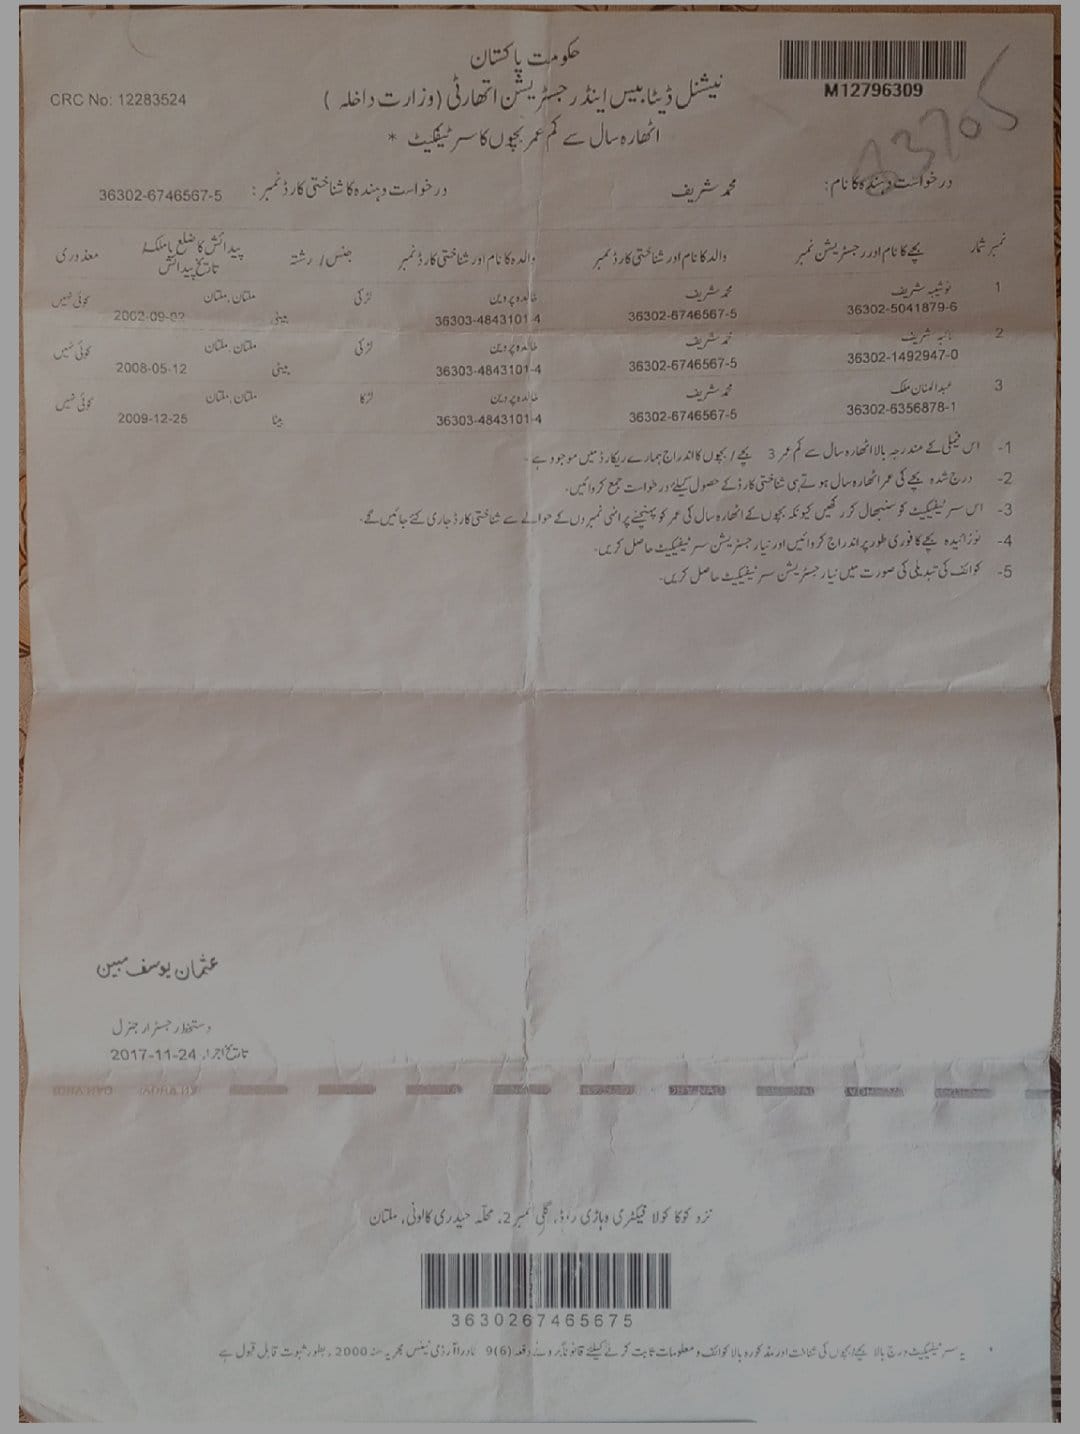 حکومت پاکستان
M12796309
نیشنل ڈیٹا بیس اینڈ رجسٹریشن اتھارٹی (وزارت داخلہ)
CRC No: 12283524
اٹھارہ سال سے کم عمر بچوں کا سرٹیفکیٹ *
درخواست دہندہ کا نام: محمد شریف درخواست دہندہ کا شناختی کارڈ نمبر: 36302-6746567-5
نمبر شمار بچے کا نام اور رجسٹریشن نمبر والد کا نام اور شناختی کارڈ نمبر والدہ کا نام اور شناختی کارڈ نمبر جنس/رشتہ پیدائش کا ضلع یا ملک/ تاریخ پیدائش معذوری
1 شریف محمد شریف خالدہ پروین لڑکی ملتان, ملتان کوئی نہیں
36302-5041879-6 36302-6746567-5 36303-4843101-4 بیٹی 2002-09-02
2 شریف محمد شریف خالدہ پروین لڑکی ملتان, ملتان کوئی نہیں
36302-1492947-0 36302-6746567-5 36303-4843101-4 بیٹی 2008-05-12
3 عبدالمنان ملک محمد شریف خالدہ پروین لڑکا ملتان, ملتان کوئی نہیں
36302-6356878-1 36302-6746567-5 36303-4843101-4 بیٹا 2009-12-25
1- اس فیملی کے مندرجہ بالا اٹھارہ سال سے کم عمر 3 بچے/بچوں کا اندراج ہمارے ریکارڈ میں موجود ہے۔
2- درج شدہ بچے کی عمر اٹھارہ سال ہوتے ہی شناختی کارڈ کے حصول کیلئے درخواست جمع کروائیں۔
3- اس سرٹیفیکیٹ کو سنبھال کر رکھیں کیونکہ بچوں کے اٹھارہ سال کی عمر کو پہنچنے پر انہی نمبروں کے حوالے سے شناختی کارڈ جاری کئے جائیں گے۔
4- نوزائیدہ بچے کا فوری طور پر اندراج کروائیں اور نیا رجسٹریشن سرٹیفیکیٹ حاصل کریں۔
5- کوائف کی تبدیلی کی صورت میں نیا رجسٹریشن سرٹیفیکیٹ حاصل کریں۔
عثمان یوسف مبین
دستخط رجسٹرار جنرل
تاریخ اجراء 2017-11-24
نزد کوکا کولا فیکٹری وہاڑی روڈ, گلی نمبر 2, محلہ حیدری کالونی, ملتان
3630267465675
* یہ سرٹیفیکیٹ درج بالا بچے/بچوں کی شناخت اور مذکورہ بالا کوائف و معلومات ثابت کرنے کیلئے قانوناً بروئے دفعہ 9(6) نادرا آرڈی نینس مجریہ سنہ 2000, بطور ثبوت قابل قبول ہے